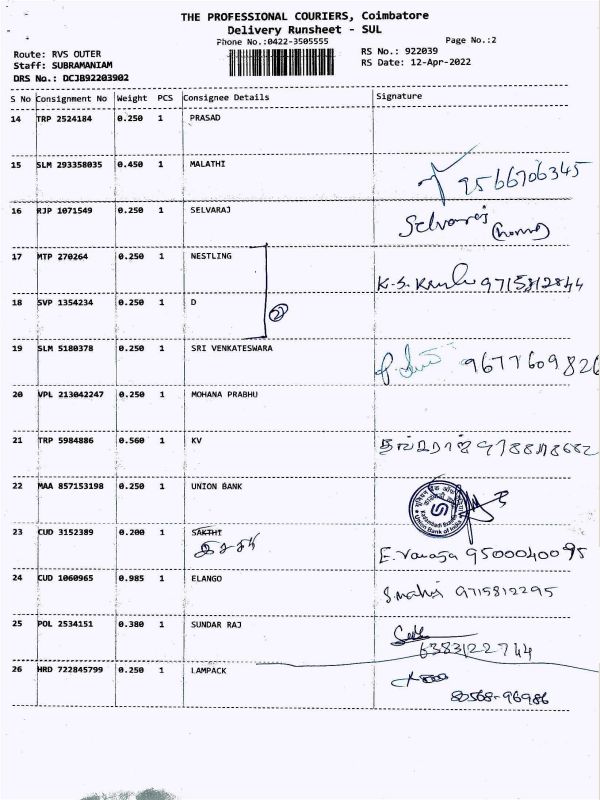 THE PROFESSIONAL COURIERS, Coimbatore
Delivery Runsheet - SUL
Phone No.:0422-3505555
Page No.:2
Route: RVS OUTER
RS No.: 922039
Staff: SUBRAMANIAM
RS Date: 12-Apr-2022
DRS No.: DCJB92203902
S No Consignment No Weight PCS Consignee Details Signature
14 TRP 2524184 0.250 1 PRASAD
15 SLM 293358035 0.450 1 MALATHI 9566706345
16 RJP 1071549 0.250 1 SELVARAJ Selvaraj
17 MTP 270264 0.250 1 NESTLING K.S. 9715812844
18 SVP 1354234 0.250 1 D 2
19 SLM 5180378 0.250 1 SRI VENKATESWARA 9677609826
20 VPL 213042247 0.250 1 MOHANA PRABHU
21 TRP 5984886 0.560 1 KV
22 MAA 857153198 0.250 1 UNION BANK
Union Bank of India
23 CUD 3152389 0.200 1 SAKTHI
E. 9500040095
24 CUD 1060965 0.985 1 ELANGO 9715812295
25 POL 2534151 0.380 1 SUNDAR RAJ
6383122744
26 HRD 722845799 0.250 1 LAMPACK
80568-96986